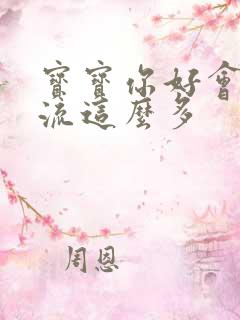 寶寶你好會
流這麼多
周恩